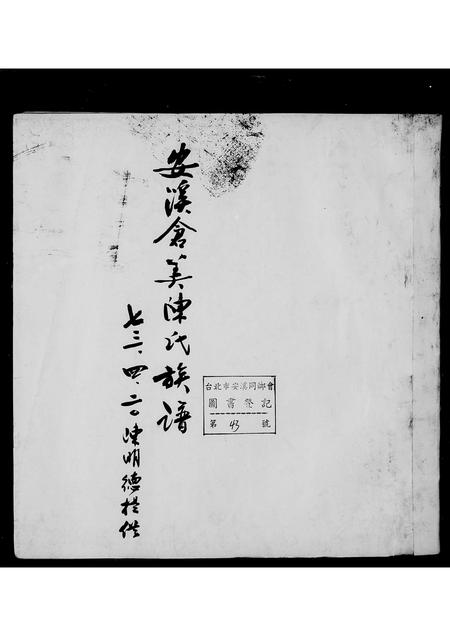 安溪倉美陳氏族譜
七三、四、二〇陳明德提供
台北市安溪同鄉會
圖書登記
第43號